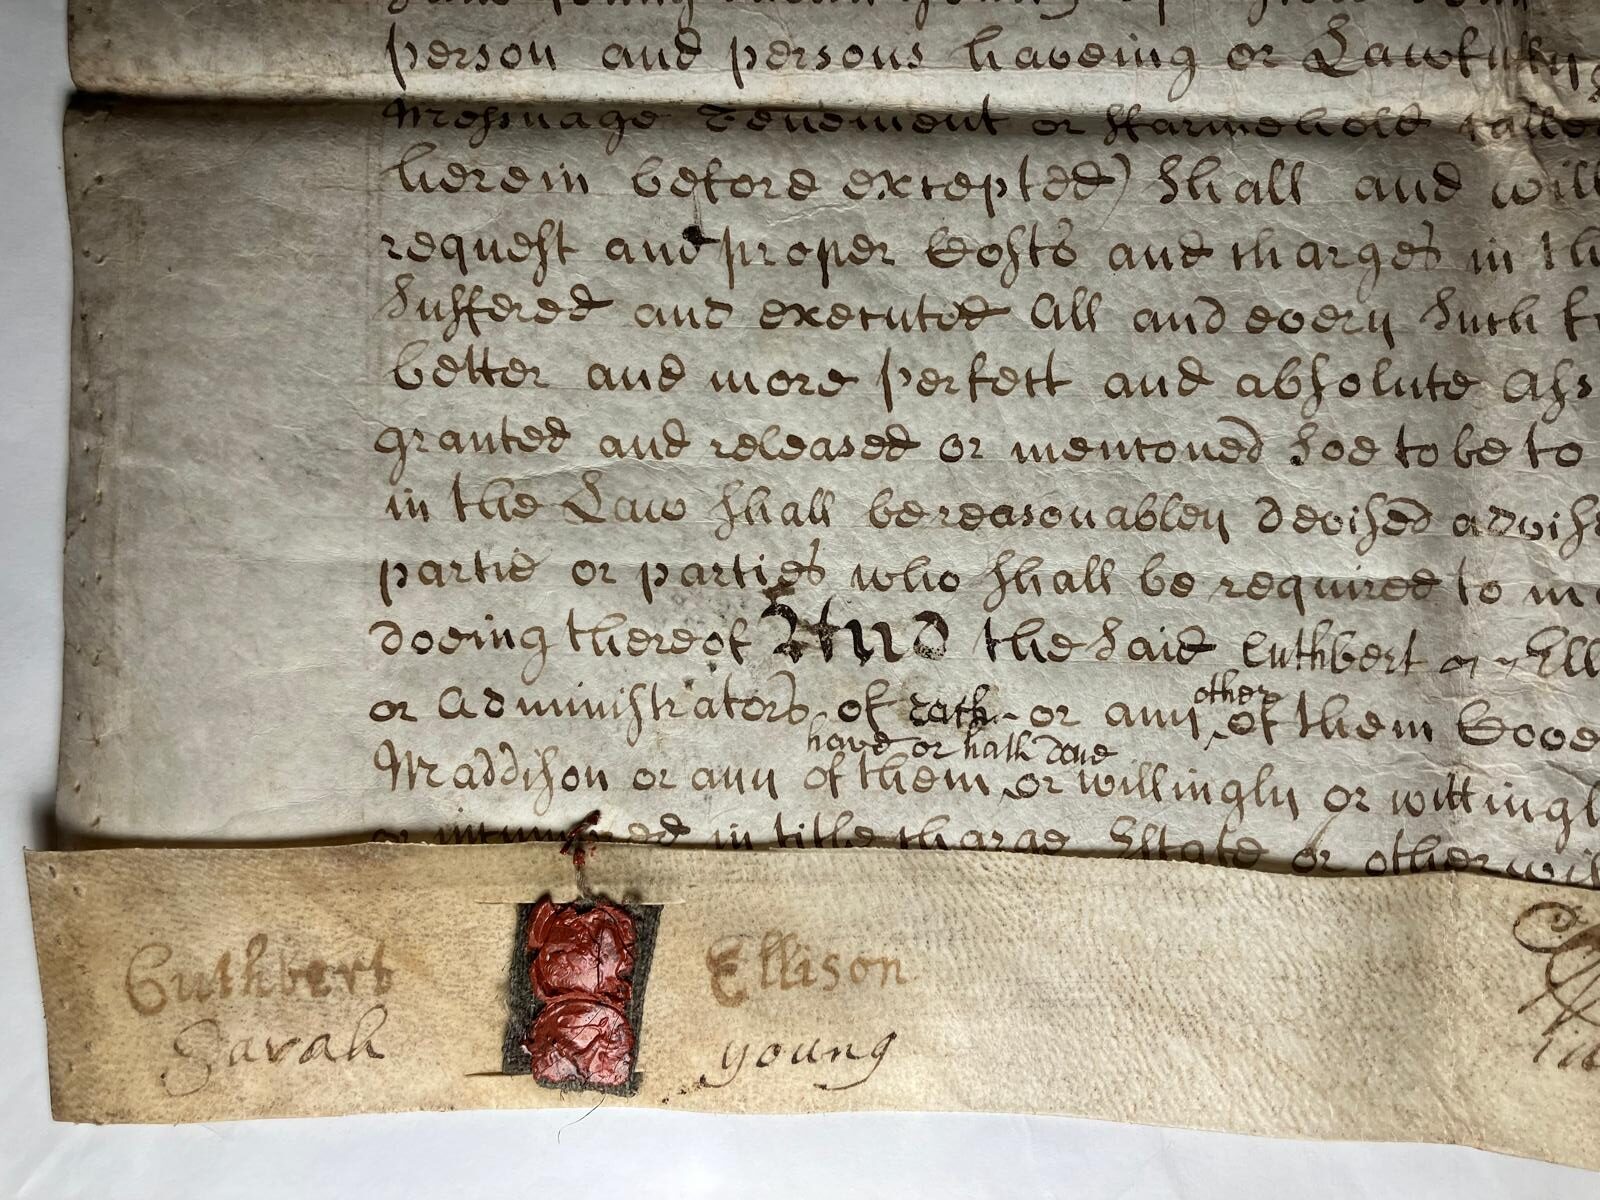 person and persons haveing or Lawfully
Messuage Tenement or ffarmehold called
herein before excepted) shall and will
request and proper Costs and charges in the
Suffered and executed All and every such
better and more perfect and absolute Ass
granted and released or mentoned soe to be to
in the Law shall be reasonabley devised advis
partie or parties who shall be required to
doeing thereof And the said Cuthbert Ell
or Administrators of each or any other of them
have or hath done
Maddison or any of them or willingly or wittingl
in title charge Estate or other
Cuthbert Ellison
Sarah young